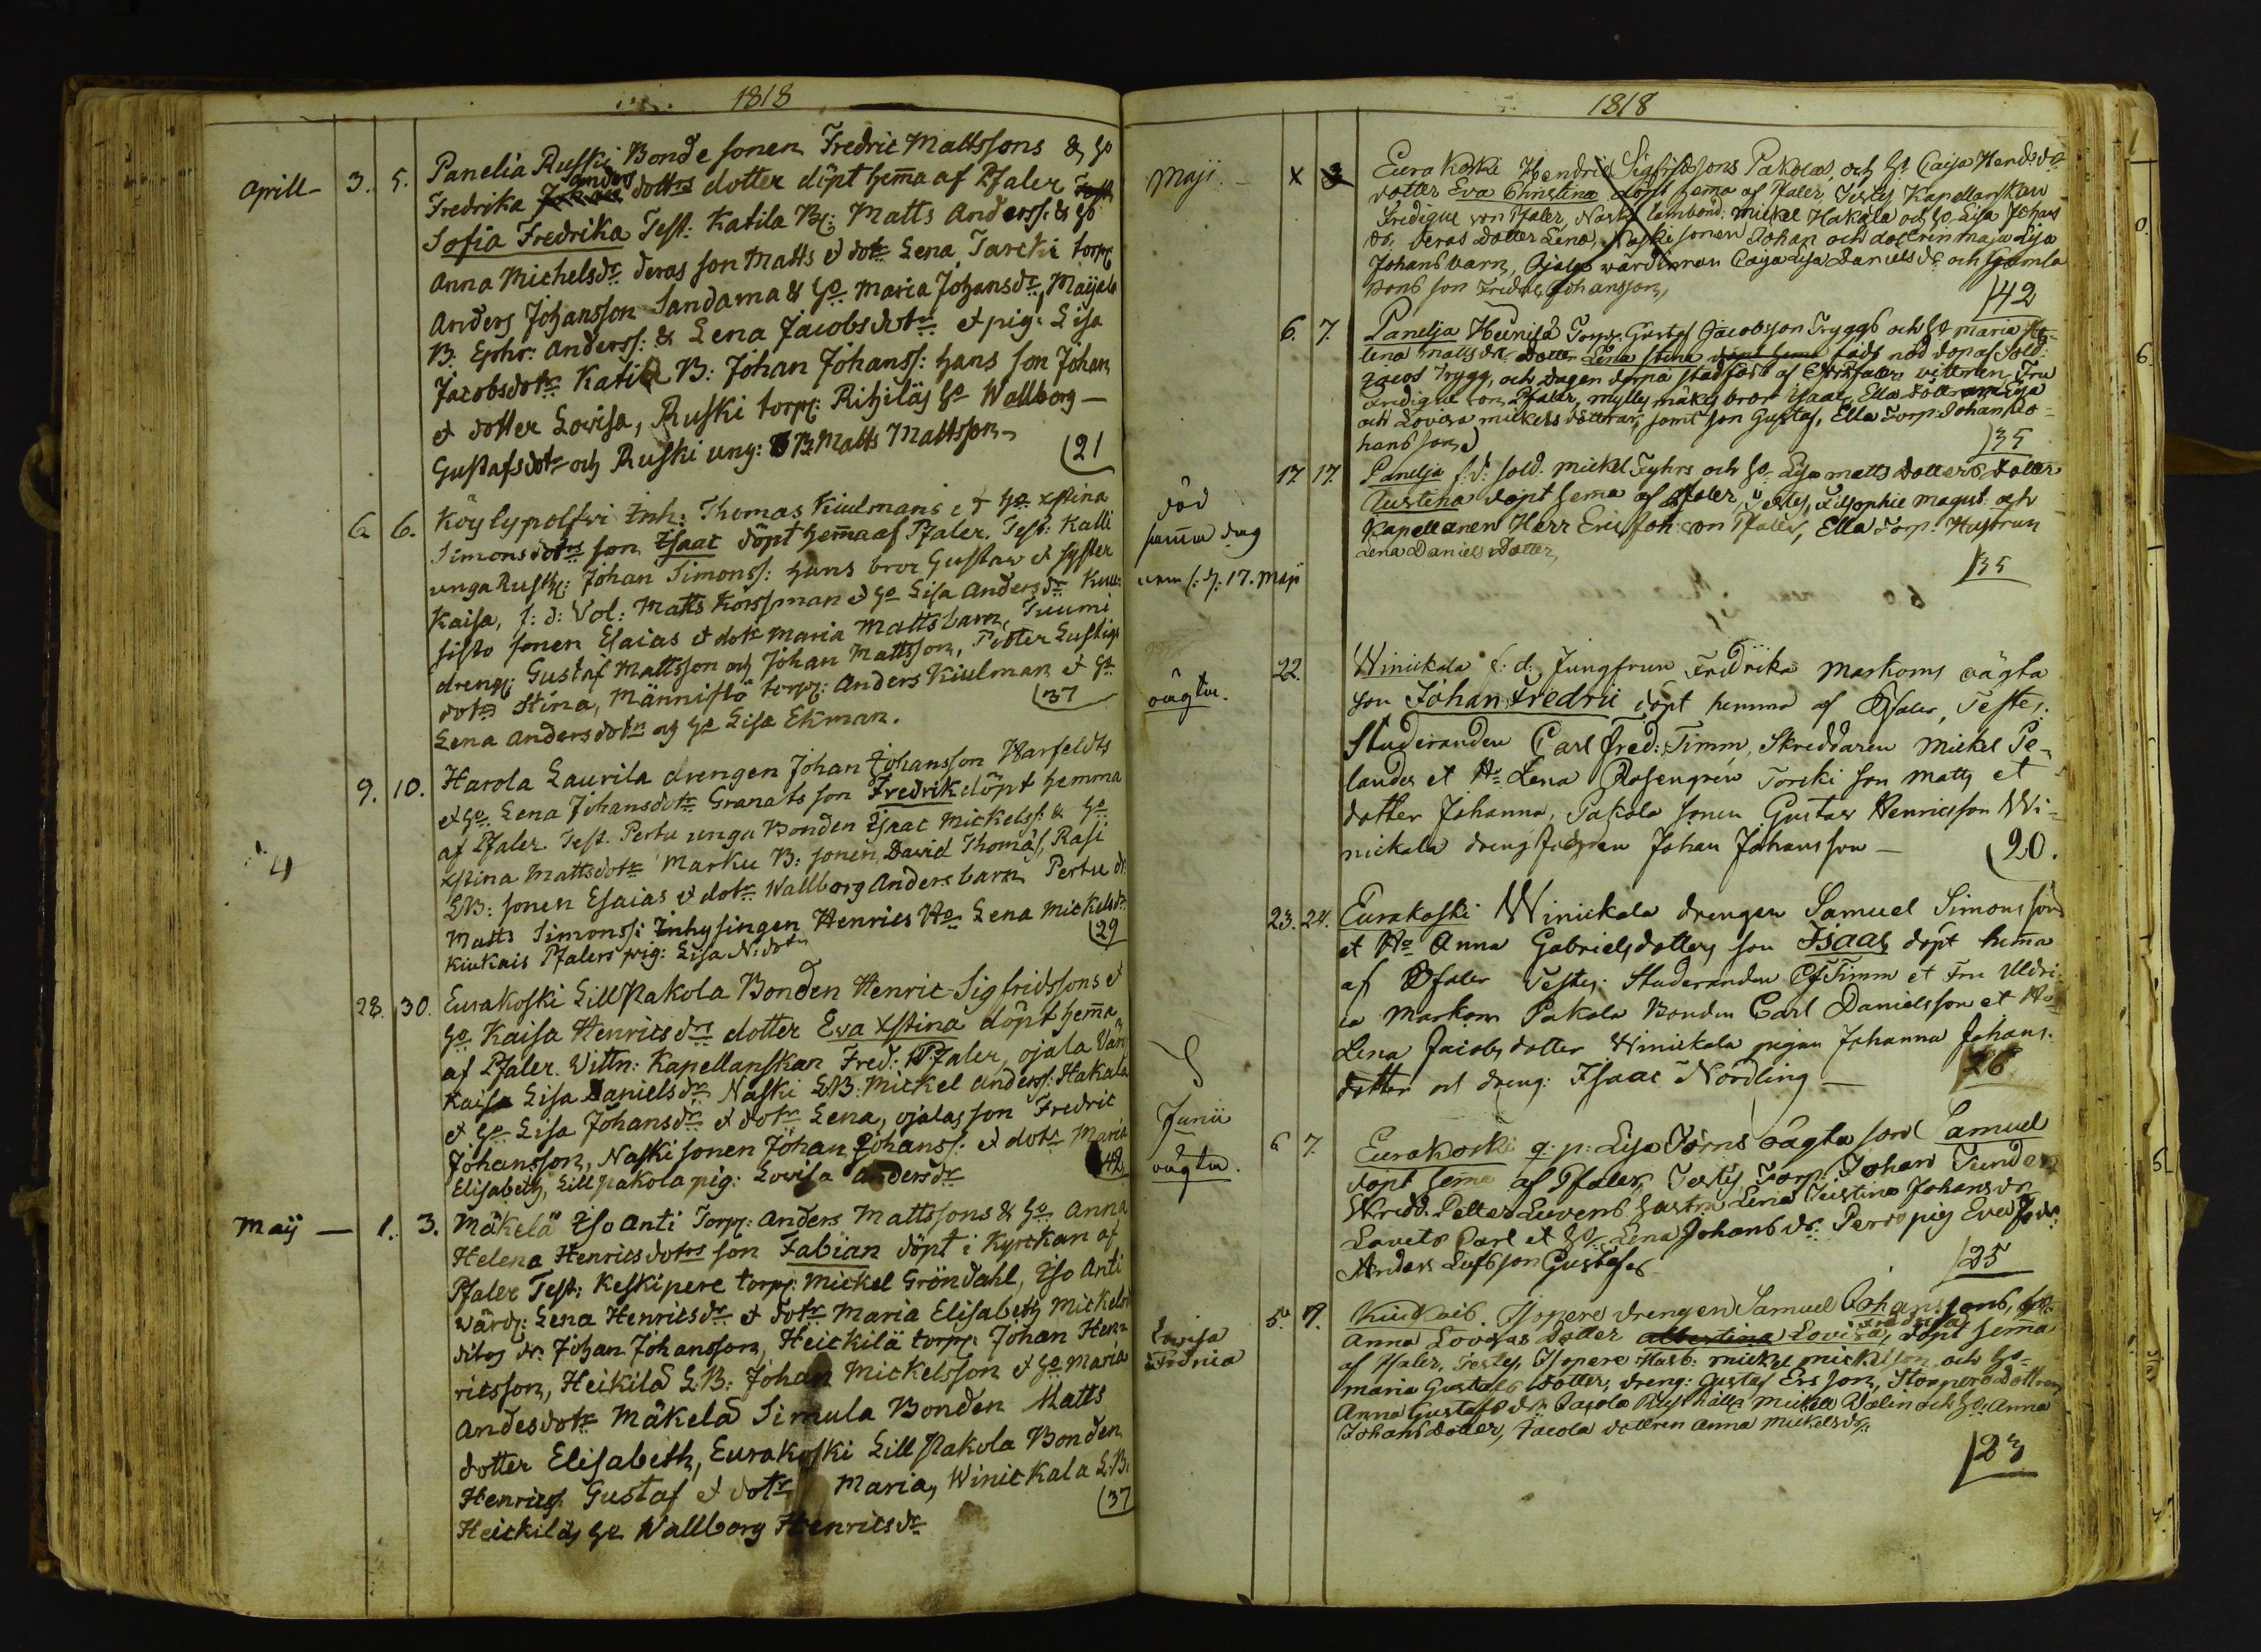 1818
Aprill - 3. 5. Panelia Ruski Bonde sonen Fredric Mattssons & ho
Fredrika anders dotters dotter döpt hema af Pfaler
Sofia Fredrika Test: Katila B: Matts Anderss: & ho
Anna Michelsdr deras son Matts et dotr Lena, Tarcki torp:
Anders Johansson Sandama & ho Maria Johansdr, Maijala
B. Ephr: Anderss: & Lena Jacobsdotr et pig: Lisa
Jacobsdotr Katila B: Johan Johanss: hans son Johan
et dotter Lovisa, Ruski torp: Rihiläs ho Wallborg —
Gustafsdotr och Ruski ung: B: Matts Mattsson (21
6. 6. Köylypolfvi Inh: Thomas Kiulmans et ho xstina
Simonsdotrs son Isaac döpt hemma af Pfaler. Test: Kalli
unga Rusth: Johan Simonss: hans bror Gustav et syster
Kaisa, f: d: Vol: Matts Korssman et ho Lisa Andersdr
sisto sonen Esaias et dotr Maria Mattsbarn, Tuumi
dreng: Gustaf Mattsson och Johan Mattsson, Petter Lustigs
dotr Stina, Männistö torp: Anders Kiulman et ho
Lena Andersdotr och ho Lisa Ekman. (37
9. 10. Harola Laurila drengen Johan Johansson Harfeldts
et ho Lena Johansdotr Granats son Fredrik döpt hemma
af Pfaler Test. Pertu unga Bonden Isaac Mickelss: & ho
xstina Mattsdotr Marku B: sonen David Thomas, Rasi
LB: sonen Esaias et dotr Wallborg Anders barn Pertu dr:
Matts Simonss: Inhysingen Henrics Ho Lena Mickelsdr
Kiukais Pfalers pig: Lisa N: dotr (29
28. 30. Eurakoski Lill Pakola Bonden Henric Sigfridssons et
ho Kaisa Henricsdrs dotter Eva xstina döpt hema
af Pfaler. Vittn: Kapellanskan Fred: Pfaler, ojala Värd
Kaisa Lisa Danielsdr Naski LB: Mickel Anderss: Hakala
et ho Lisa Johansdr et dotr Lena, ojalas son Fredric
Johansson, Naski sonen Johan Johanss: et dotr Maria
Elisabeth, Lill pakola pig: Lovisa Andersdr 42
Maij — 1. 3. Mäkelä Iso Anti Torp: Anders Mattssons & ho Anna
Helena Henricsdotrs son Fabian döpt i Kyrckan af
Pfaler Test: Keskipere torp: Mickel Gröndahl, Iso Anti
wärd: Lena Henricsdr et dotr Maria Elisabeth Mickelsdr
dito dr: Johan Johansson, Heickilä torp: Johan Hen-
ricsson, Heikilä L.B: Johan Mickelsson et ho Maria
Andesdotr Mäkelä Simula Bonden Matts
dotter Elisabeth, Eurakoski Lill Pakola Bonden
Henrics Gustaf et dotr Maria, Winickala L.B:
Heickiläs ho Wallborg Henricsdr (37
1818
Maji - Eura Koski Hendric Sigfridssons Pakolas, och ho Caisa Hendr:
dotter Eva Christina döpt hema af Pfaler, Testes Kapellanskan
Fredique von Pfaler, Naski lambond: Mickel Hakala och ho Lisa Johans
dr. deras dotter Lena, Naski sonen Johan och dottren Maja Lisa
Johans barn, Ojala wärdinnan Caja Lisa Daniels dr och gamla
bond son Fredric Johansson, 42
6. 7. Panelja Heinilä Torp: Gustaf Jacobsson Tryggs och ho Maria
lina Matts dr. dotter Lena Stina föds nöd döp af Sold:
Jacob Trygg, och dagen derpå stadfäst af Pfaler, vittnen Fru
Fredique von Pfaler, Mylly mäkis bror Isaac, Ella dottren Lisa
och Lovisa Mickels döttrar, samt son Gustaf, Ella Torp. Johan Jo-
hansson, 35
död
samma dag
nem: d: 17. Maji
17 17. Panelja f: d: sold. Mickel Fyhrs och ho Lisa Matts dotters dotter
Justina döpt hema af Pfaler, Testes, Filosophie Magist. och
Kapellanen Herr Eric Joh: von Pfaler, Ella Torp. Hustrun
Lena Daniels dotter, 35
oägta.
22. Winickala f: d: Jungfrun Fredrika Markoms oägta
son Johan Fredric döpt hemma af Pfaler, Testes.
Studeranden Carl Fred: Timm, Skreddaren Mickel Pe-
lander et Ho Lena Rosengrén Torcki son Matts et
dotter Johanna, Pakola sonen Gustav Henricsson Wi-
nickala dreng Johan Johansson — (20.
23. 24. Eurakoski Winickala drengen Samuel Simonssons
et Ho Anna Gabrielsdotters son Isaac döpt hema
af Pfaler Testes: Studeranden CF Timm et Fru Uldri-
ca Markom Pakola Bonden Carl Danielsson et Ho
Lena Jacobsdotter Winickala pigan Johanna Johans.
dotter och dreng: Isaac Nordling — 26
Junii
oägta.
6 7. Eurakoski q: p: Lisa Törns oägta son Samuel
döpt hema af Pfaler, Testes Torp: Johan
Skredd. Petter Luvens hustru Lena Justina Johansdr
Lovets Carl et ho Lena Johans dr.
Anders Gustafs 25
Lovisa
Fredrica
5. 7. Kiukais. Isopere drengen Samuel Johanssons, ho
Anna Lovisas dotter Albertina Lovisa Fredrica, döpt hema
af Pfaler, Testes, Isopere Husb: Mickel Mickelsson och ho
Maria Gustafs dotter, dreng: Gustaf Ersson, Storpere dottren
Anna Gustafs dr. Mickel Walin och ho Anna
Johans dotter, Jacola dottren Anna Mickelsdr. 23